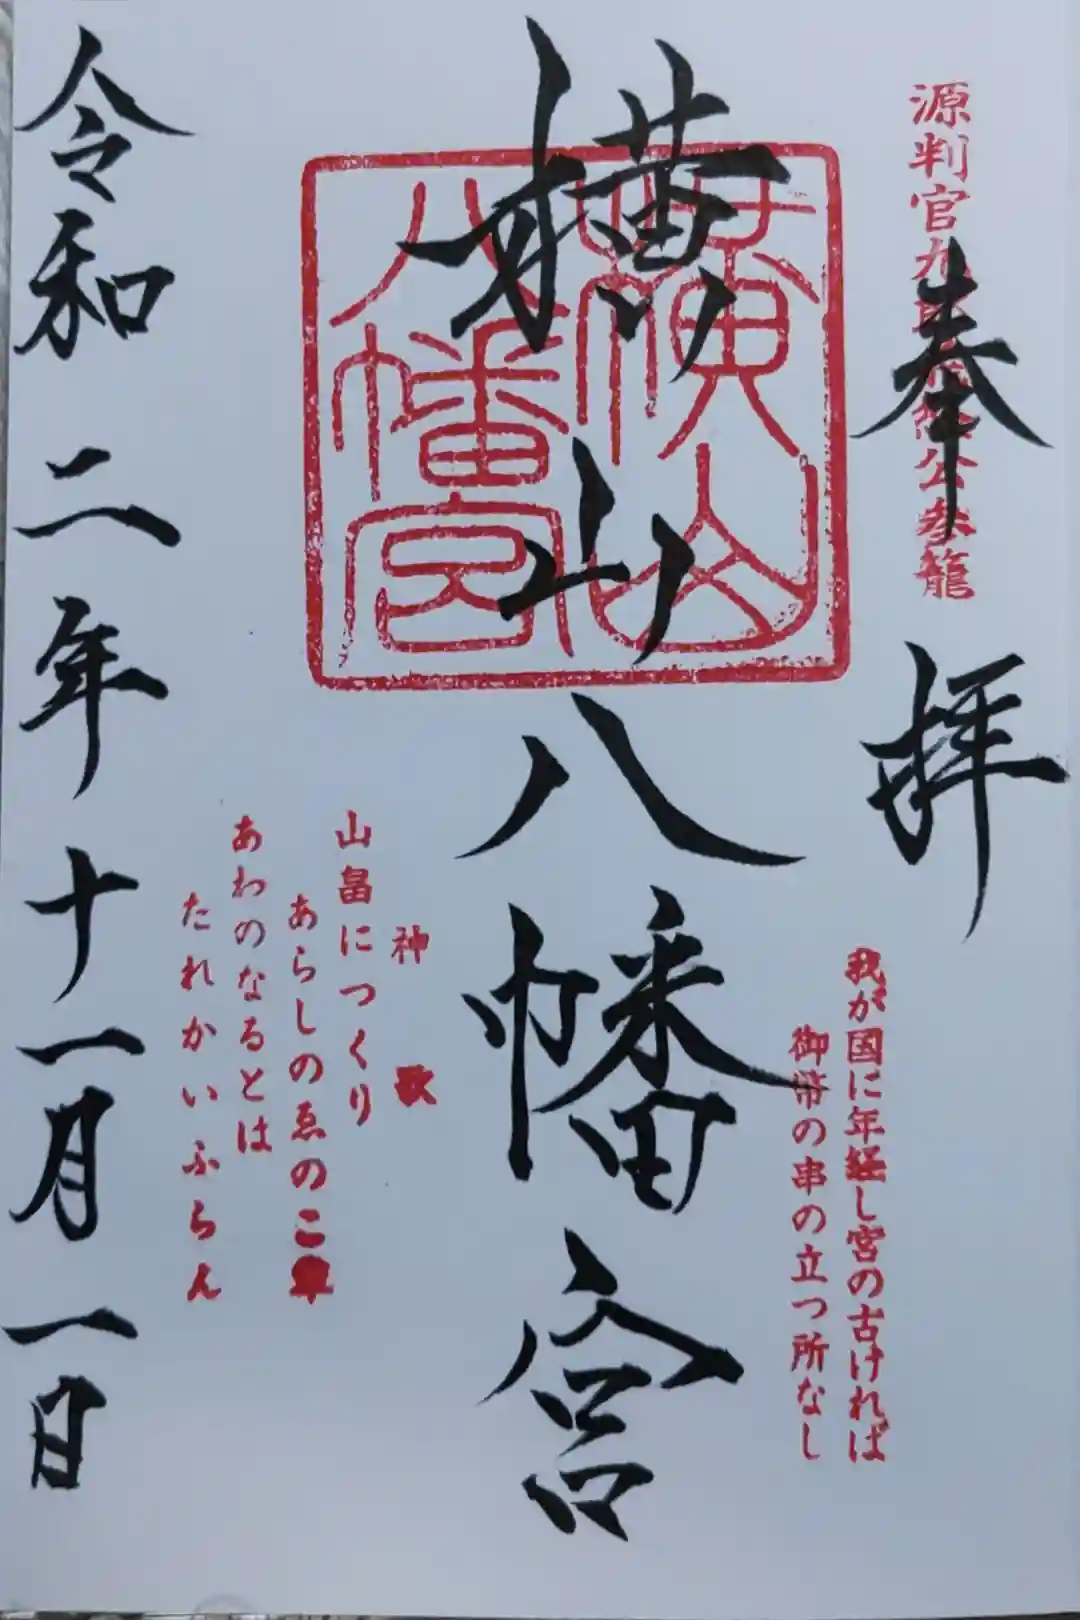 源判官九郎義経公参籠
奉拝
我が国に年経し宮の古ければ
御幣の串の立つ所なし
横山八幡宮
横山
八幡宮
神歌
山畠につくり
あらしのゑのこ草
あわのなるとは
たれかいふらん
令和二年十一月一日